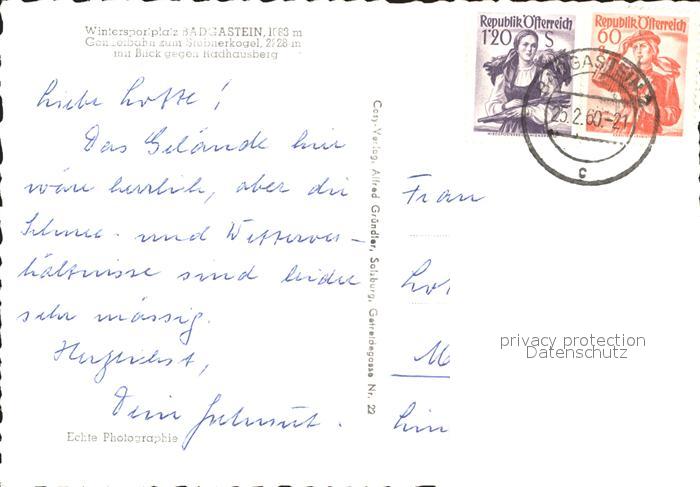 Wintersportplatz BADGASTEIN, 1083 m
Gondelbahn zum Stubnerkogel, 2228 m
mit Blick gegen Radhausberg
Liebe Lotte!
Das Gelände hier
wäre herrlich, aber die
Schnee- und Wetterver-
hältnisse sind leider
sehr mässig.
Herzlichst,
Dein Helmut.
Echte Photographie
Cosy-Verlag, Alfred Gründler, Salzburg, Getreidegasse Nr. 22
Republik Österreich
1˙20 S
Republik Österreich
60
BADGASTEIN 2
25.2.60-21
c
Frau
Lo
M
Lin
privacy protection
Datenschutz